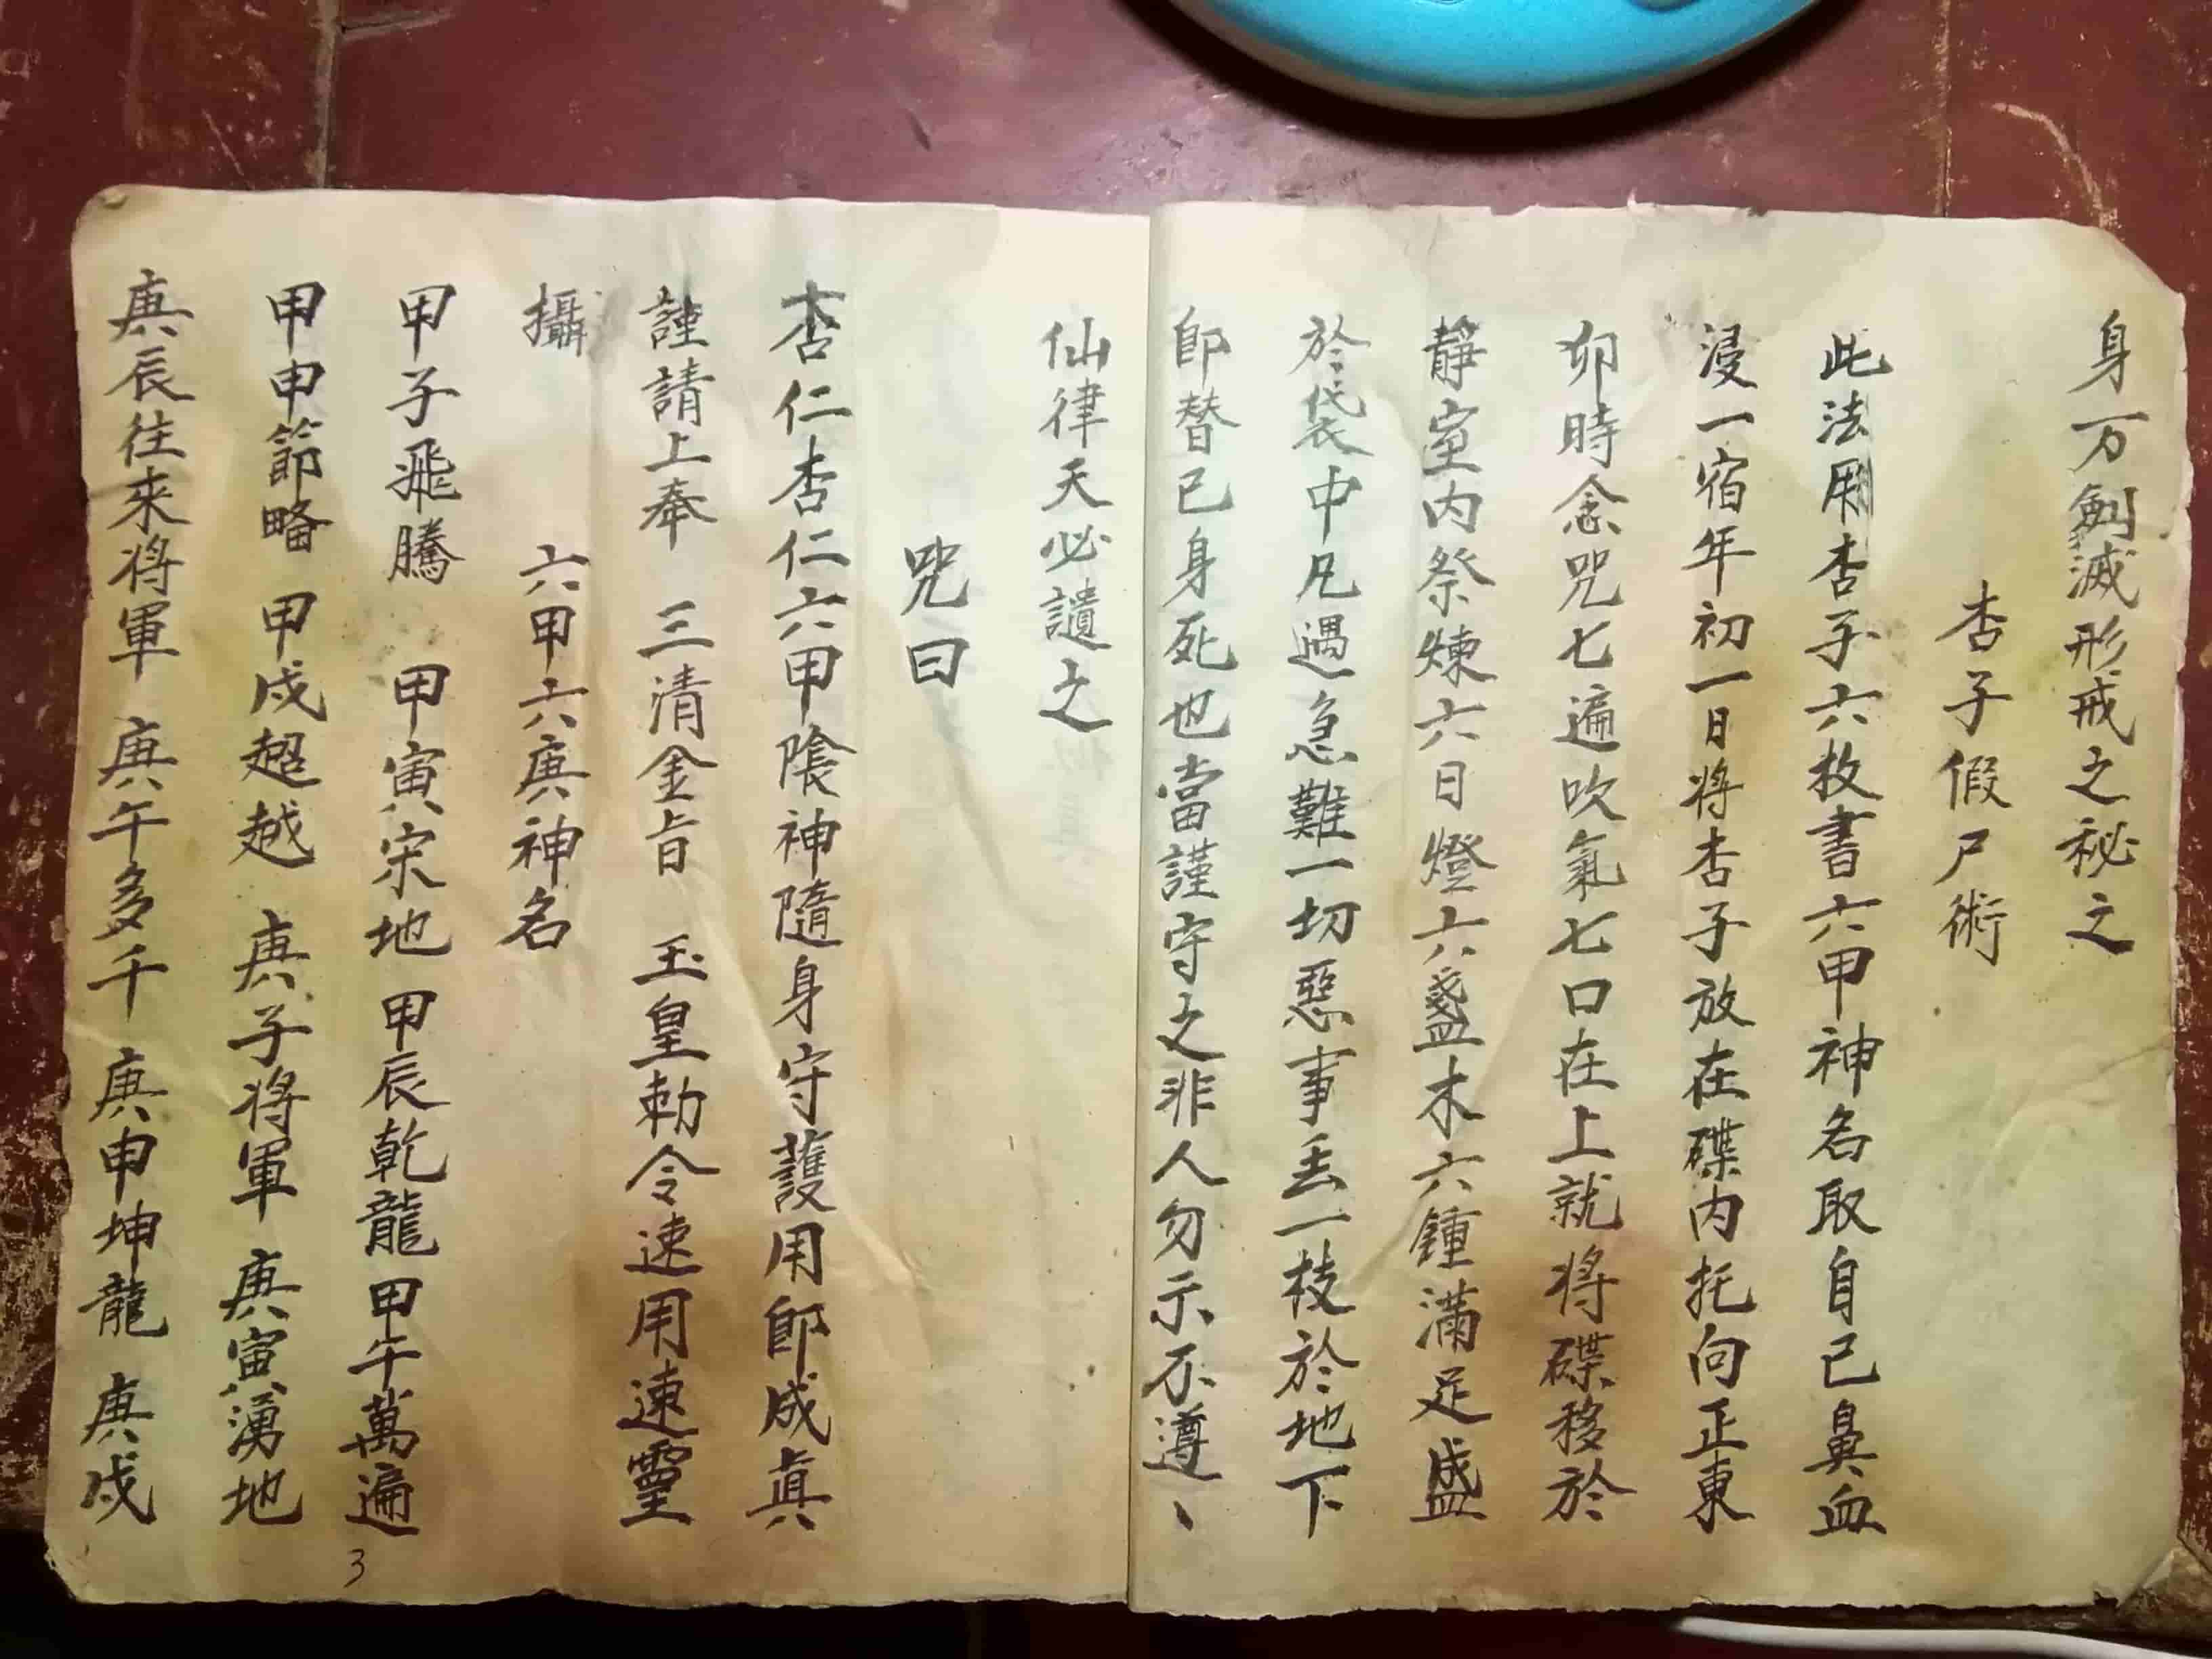 身一万劍滅形戒之秘之
杏子假尸術
此法用杏子六枚書六甲神名取自己鼻血
浸一宿年初一日將杏子放在碟内托向正東
卯時念咒七遍吹氣七口在上就將碟移於
靜室内祭煉六日燈六盞木六鍾滿足盛
於袋中凡遇急難一切惡事丟一枝於地下
即替己身死也當謹守之非人勿示不遵丶
仙律天必譴之
咒曰
杏仁杏仁六甲陰神隨身守護用即成真
謹請上奉 三清金旨 玉皇勅令速用速靈
攝
六甲六庚神名
甲子飛騰 甲寅宋地 甲辰乾龍 甲午萬遍
甲申節略 甲戌超越 庚子將軍 庚寅湧地
庚辰往來將軍 庚午多千 庚申坤龍 庚戌
3